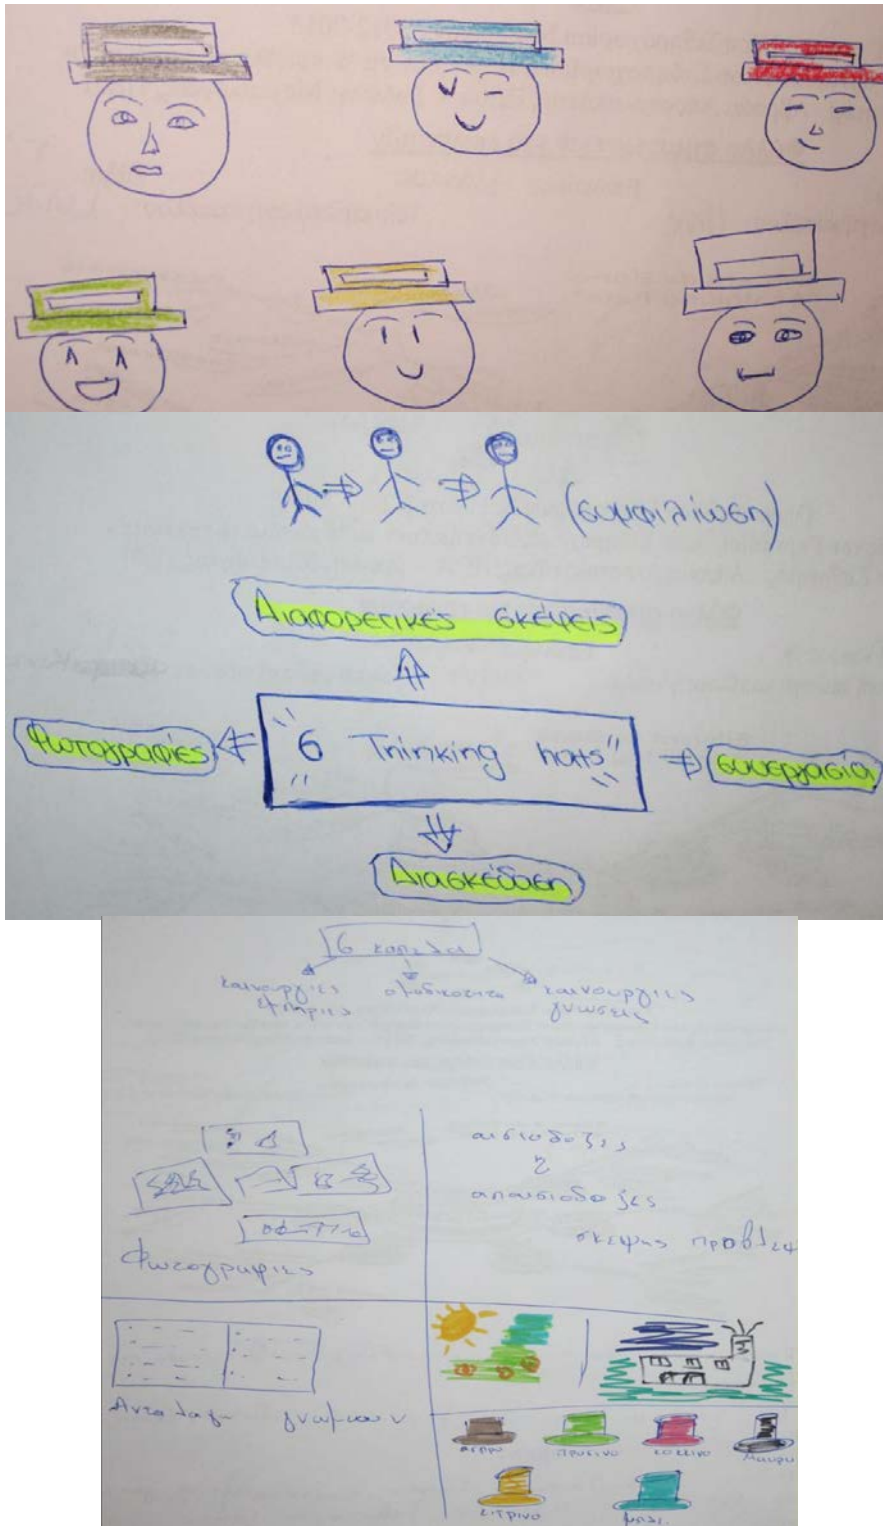 (συμφιλίωση)
Διαφορετικές σκέψεις
Φωτογραφίες
"6 Thinking hats"
συνεργασία
Διασκέδαση
6 καπελα
καινουργιες
εμπιριες
ομαδικοτητα
καινουργιες
γνωσεις
Φωτογραφιες
αισιοδοξες
απαισιοδοξες
σκεψης
Ανταλαγη γνωμων
ασπρο
πρασινο
κοκκινο
μαυρο
κιτρινο
μπλε